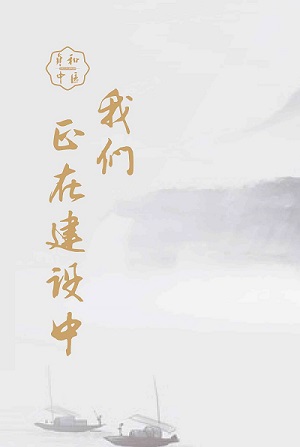 和
中医
我们
正在建设中